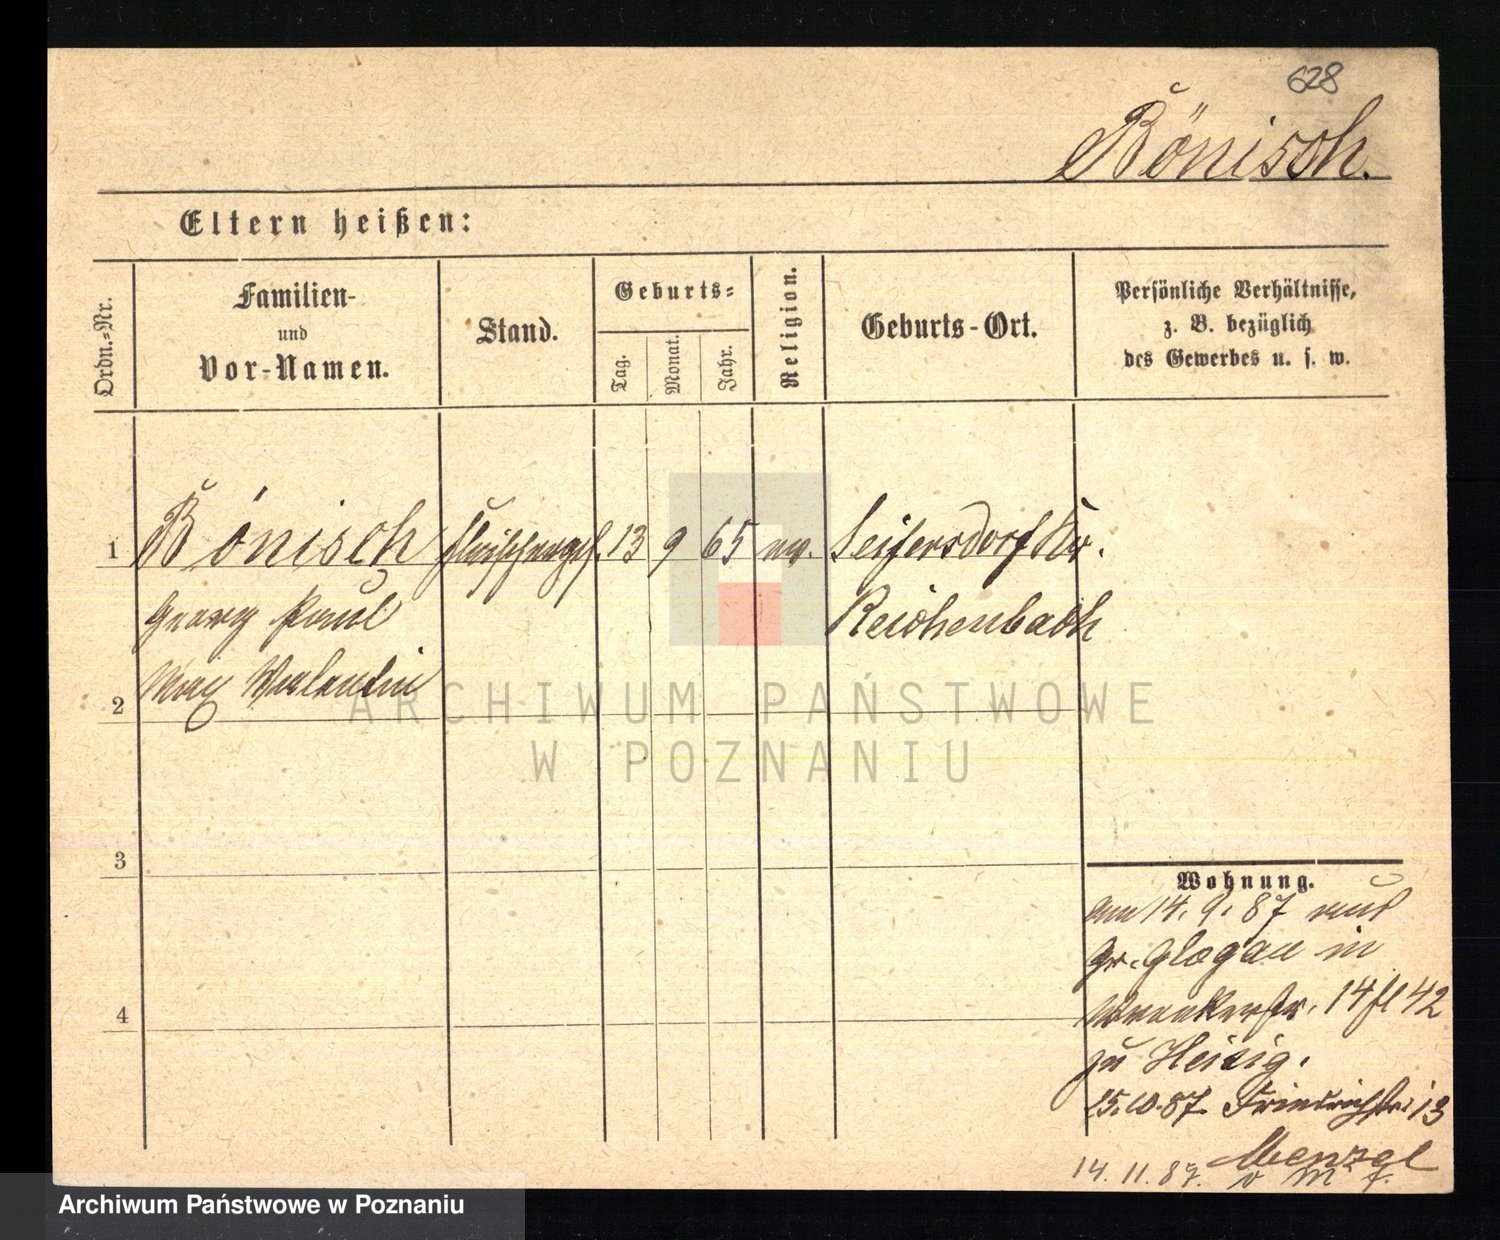 628
Bönisch.
Eltern heißen:
Ordn.-Nr.
Familien-
und
Vor-Namen.
Stand.
Geburts-
Tag.
Monat.
Jahr.
Religion.
Geburts-Ort.
Persönliche Verhältnisse,
z. B. bezüglich
des Gewerbes u. s. w.
1 Bönisch Fleischerges. 13 9 65 ev. Seifersdorf Kr.
Georg Paul Reichenbach
2 Max Valentin
3
4
Wohnung.
am 14. 9. 87 aus
Gr. Glogau in
14 fl 42
zu Heisig.
15.10.87 Friedrichstr. 13
Menzel
14. 11. 87. v m f.
ARCHIWUM PAŃSTWOWE
W POZNANIU
Archiwum Państwowe w Poznaniu